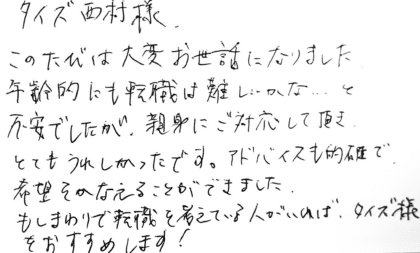 タイズ 西村様.
このたびは大変お世話になりました
年齢的にも転職は難しいかな…と
不安でしたが、親身にご対応して頂き
とてもうれしかったです。アドバイスも的確で、
希望をかなえることができました.
もしまわりで転職を考えている人がいれば、タイズ様
をおすすめします!